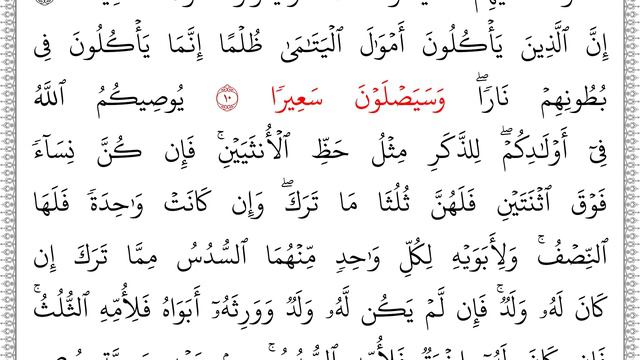 إِنَّ ٱلَّذِينَ يَأۡكُلُونَ أَمۡوَٰلَ ٱلۡيَتَٰمَىٰ ظُلۡمًا إِنَّمَا يَأۡكُلُونَ فِي
بُطُونِهِمۡ نَارٗاۖ وَسَيَصۡلَوۡنَ سَعِيرٗا ١٠ يُوصِيكُمُ ٱللَّهُ
فِيٓ أَوۡلَٰدِكُمۡۖ لِلذَّكَرِ مِثۡلُ حَظِّ ٱلۡأُنثَيَيۡنِۚ فَإِن كُنَّ نِسَآءٗ
فَوۡقَ ٱثۡنَتَيۡنِ فَلَهُنَّ ثُلُثَا مَا تَرَكَۖ وَإِن كَانَتۡ وَٰحِدَةٗ فَلَهَا
ٱلنِّصۡفُۚ وَلِأَبَوَيۡهِ لِكُلِّ وَٰحِدٖ مِّنۡهُمَا ٱلسُّدُسُ مِمَّا تَرَكَ إِن
كَانَ لَهُۥ وَلَدٞۚ فَإِن لَّمۡ يَكُن لَّهُۥ وَلَدٞ وَوَرِثَهُۥٓ أَبَوَاهُ فَلِأُمِّهِ ٱلثُّلُثُۚ